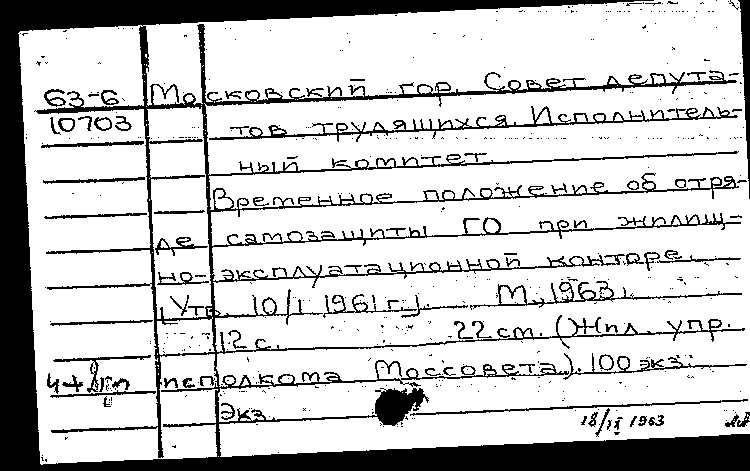 63-6 Московский гор. Совет депута-
10703 тов трудящихся. Исполнитель-
ный комитет.
Временное положение об отря-
де самозащиты ГО при жилищ-
но-эксплуатационной конторе.
[Утв. 10/I 1961 г.]. М., 1963.
12 с. 22 см. (Жил. упр.
исполкома Моссовета). 100 экз.
Экз.
18/IX 1963